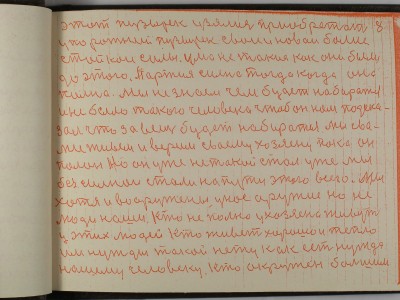 этот пузырек изъяли приобретать в
упо рожний пузырек своим новая более
стойкая сила. ума не такая как она была
до этого. Партия сила тогда когда она
полна. Мы не знали чем будет набиратся
и не было такого человека чтобы он нам подска-
зал что за чем будет набиратся мы сва-
ме живем и верим своему хозяину пока он
полон но он уже не такой стал уже мы
без сил стали на пути этого всего. Мы
хотя и вооружены, у нас оружие но не
люди наши. Кто не только у хозяина живут
у этих людей Кто живет хорошо и тепло
им нужды такой нету как есть нужда
нашему человеку. Кто окружен большим